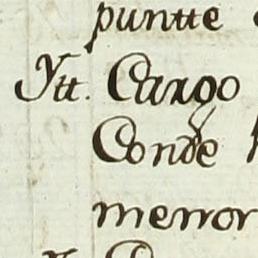 puntte
Ytt. Cargo
Conde
menor